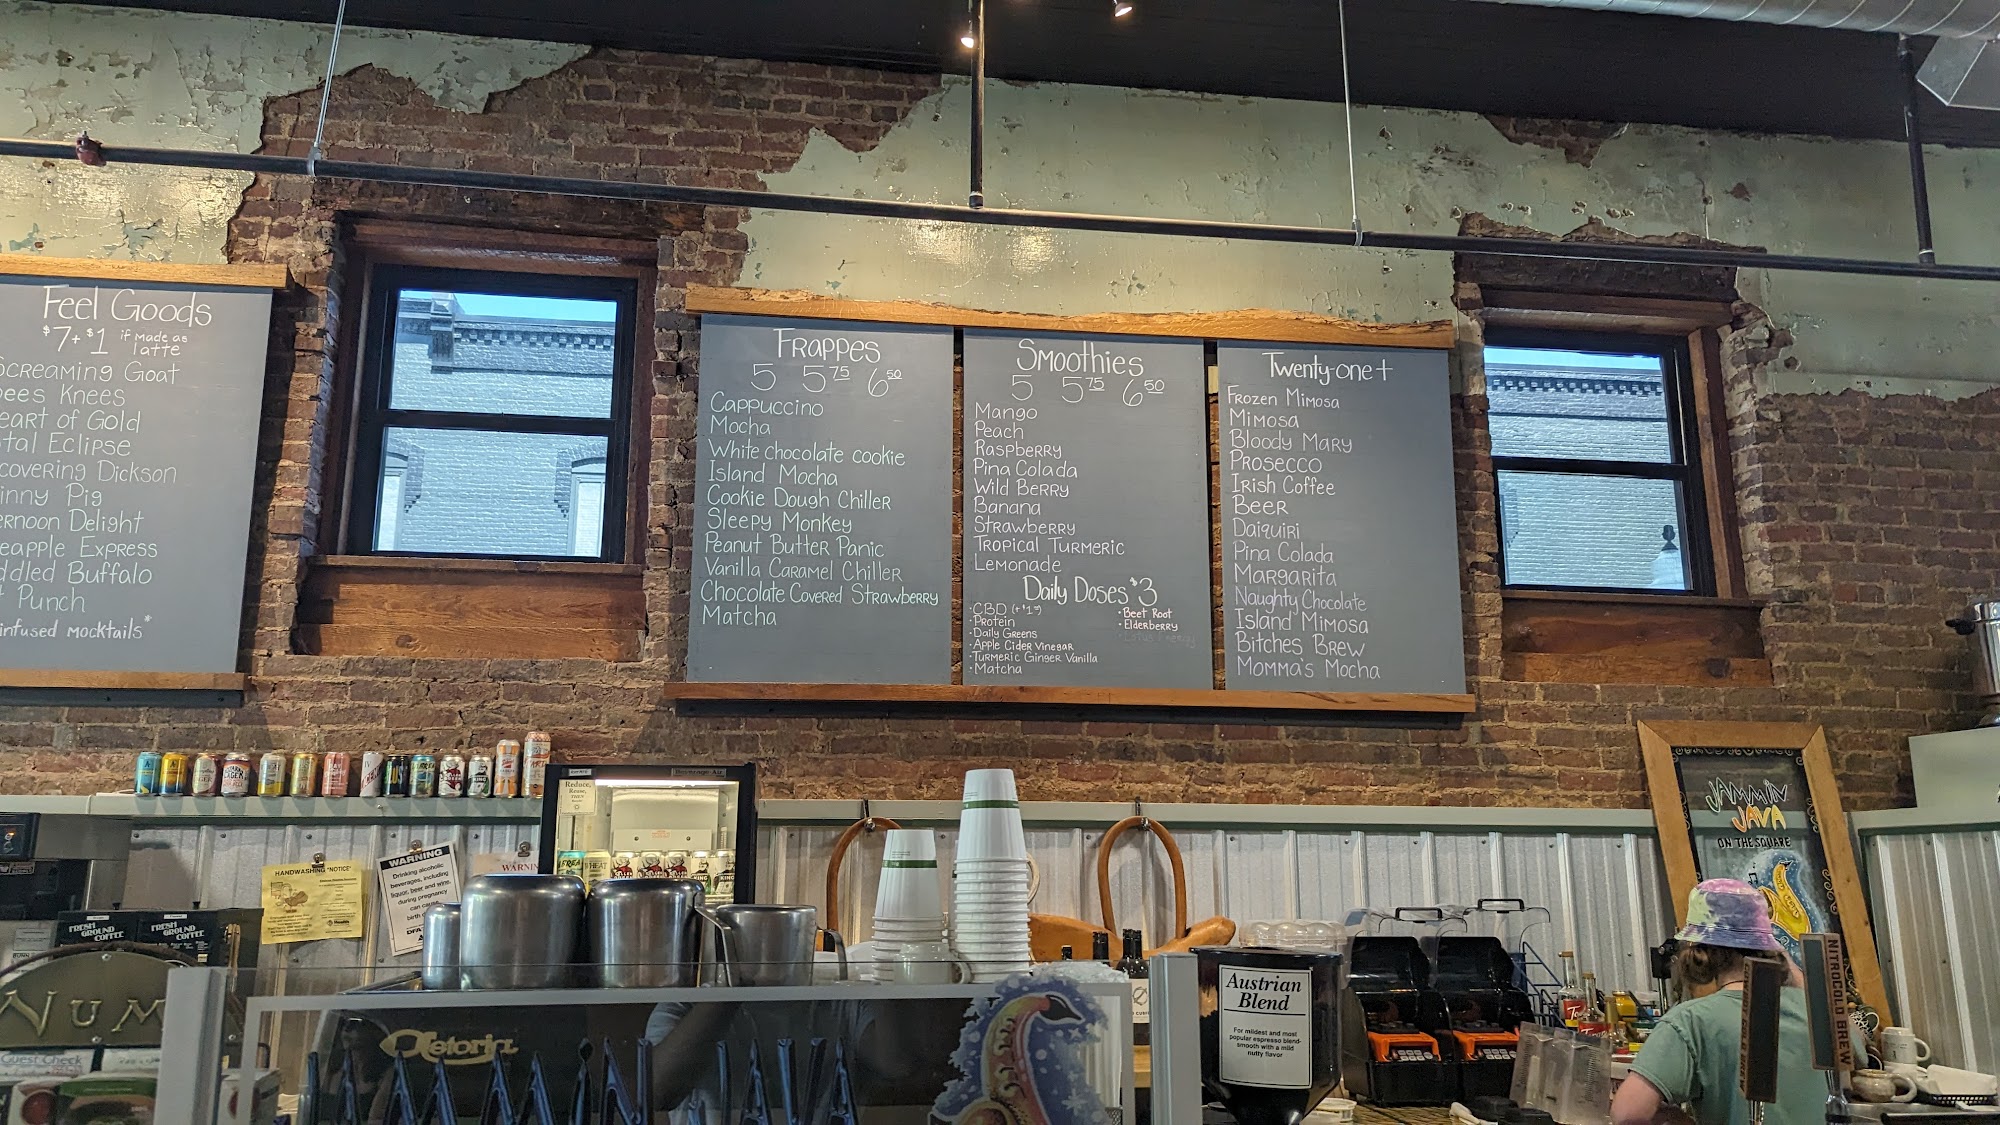 Feel Goods
$7+$1 if made as latte
Screaming Goat
Bees Knees
Heart of Gold
Total Eclipse
covering Dickson
inny Pig
ernoon Delight
eapple Express
ddled Buffalo
Punch
infused mocktails*
Frappes
5 5.75 6.50
Cappuccino
Mocha
White chocolate cookie
Island Mocha
Cookie Dough Chiller
Sleepy Monkey
Peanut Butter Panic
Vanilla Caramel Chiller
Chocolate Covered Strawberry
Matcha
Smoothies
5 5.75 6.50
Mango
Peach
Raspberry
Pina Colada
Wild Berry
Banana
Strawberry
Tropical Turmeric
Lemonade
Daily Doses $3
·CBD
·Protein
·Daily Greens
·Apple Cider Vinegar
·Turmeric Ginger Vanilla
·Matcha
·Beet Root
·Elderberry
Twenty-one+
Frozen Mimosa
Mimosa
Bloody Mary
Prosecco
Irish Coffee
Beer
Daiquiri
Pina Colada
Margarita
Naughty Chocolate
Island Mimosa
Bitches Brew
Momma's Mocha
Beverage-Air
Reduce,
Reuse,
JAMMIN
JAVA
ON THE SQUARE
HANDWASHING "NOTICE"
Health
WARNING
Drinking alcoholic
beverages, including
liquor, beer and wine,
during pregnancy
can cause
birth
WARNIN
FRESH
GROUND
COFFEE
FRESH
GROUND
COFFEE
NUM
Guest Check
Astoria
JAMMIN JAVA
Austrian
Blend
For mildest and most
popular espresso blend-
smooth with a mild
nutty flavor
NITRO COLD BREW
COLD BREW